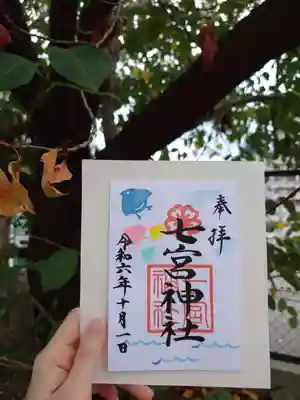 奉拝
七宮神社
令和六年十月一日